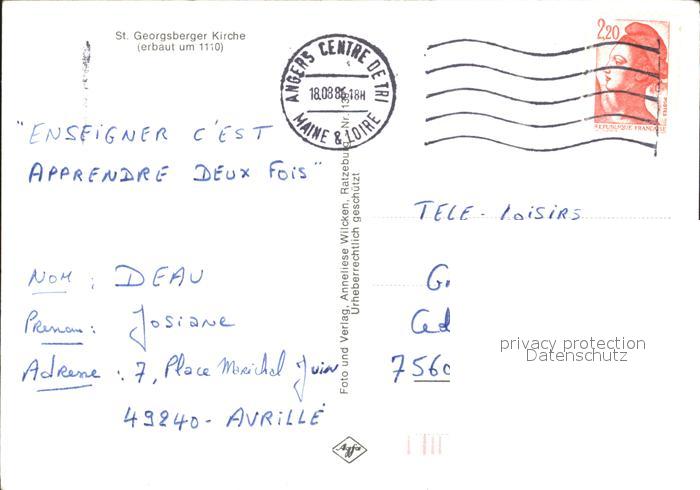 St. Georgsberger Kirche
(erbaut um 1110)
ANGERS CENTRE DE TRI
18H
MAINE & LOIRE
2,20
POSTES
REPUBLIQUE FRANÇAISE
"ENSEIGNER C'EST
APPRENDRE DEUX FOIS"
TELE-LOISIRS
NOM : DEAU
Prenom : Josiane
Adresse : 7, Place Maréchal Juin
49240 - AVRILLÉ
Foto und Verlag, Anneliese Wilcken, Ratzeburg Nr.
Urheberrechtlich geschützt
Agfa
privacy protection
Datenschutz